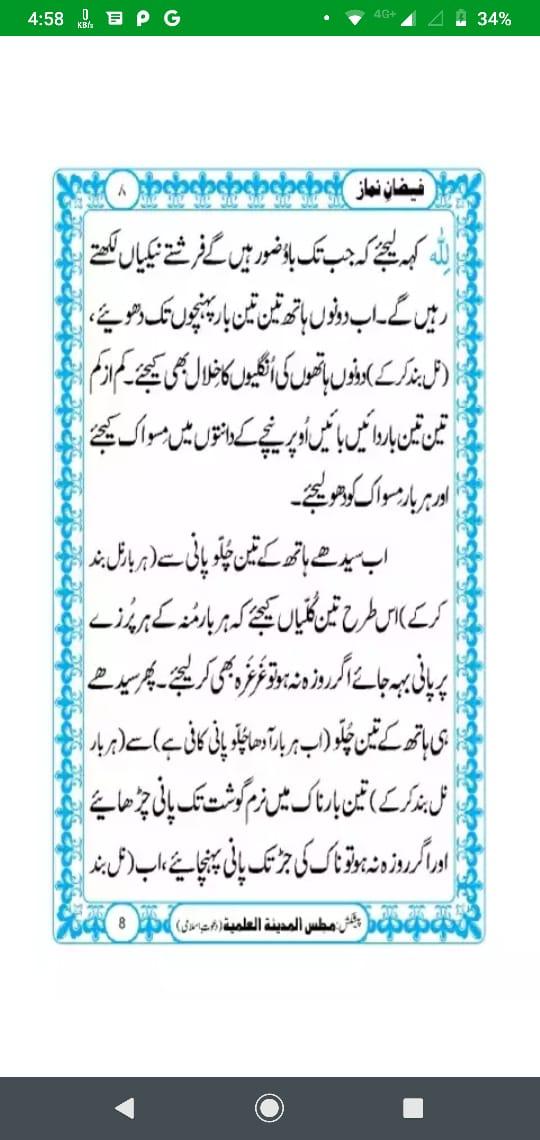 4:58
0
KB/s
P
G
4G+
34%
فیضانِ نماز
۸
لِلّٰہ کہہ لیجئے کہ جب تک باوُضو رہیں گے فرشتے نیکیاں لکھتے
رہیں گے۔اب دونوں ہاتھ تین تین بار پہنچوں تک دھوئیے،
(نل بند کرکے) دونوں ہاتھوں کی اُنگلیوں کا خِلال بھی کیجئے۔کم از کم
تین تین بار دائیں بائیں اُوپر نیچے کے دانتوں میں مِسواک کیجئے
اور ہر بار مِسواک کو دھو لیجئے۔
اب سیدھے ہاتھ کے تین چُلّو پانی سے (ہر بار نل بند
کرکے) اس طرح تین کُلّیاں کیجئے کہ ہر بار مُنہ کے ہر پُرزے
پر پانی بہہ جائے اگر روزہ نہ ہو تو غَرغَرہ بھی کر لیجئے۔پھر سیدھے
ہی ہاتھ کے تین چُلّو (اب ہر بار آدھا چُلّو پانی کافی ہے) سے (ہر بار
نل بند کرکے) تین بار ناک میں نرم گوشت تک پانی چڑھائیے
اور اگر روزہ نہ ہو تو ناک کی جڑ تک پانی پہنچائیے،اب (نل بند
پیشکش: مجلس المدینۃ العلمیۃ (دعوتِ اسلامی)
8